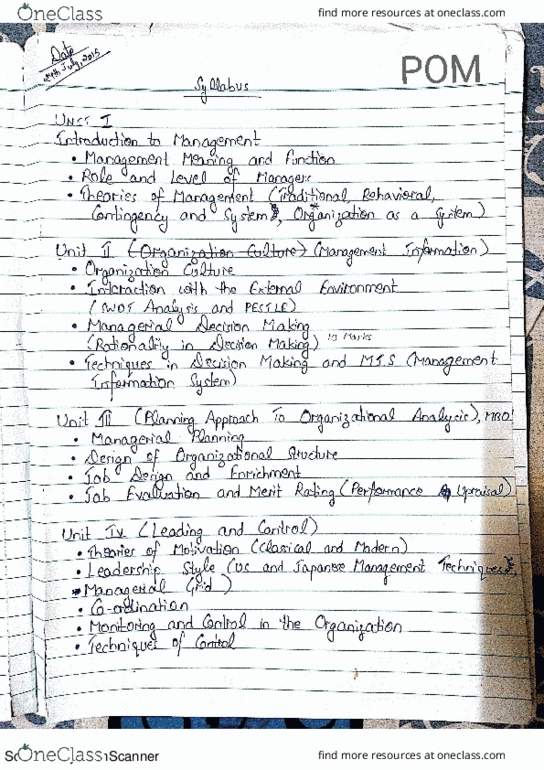 OneClass
find more resources at oneclass.com
Date
24th July, 2015
POM
Syllabus
Unit I
Introduction to Management
• Management Meaning and Function
• Role and Level of Managers
• Theories of Management (Traditional, Behavioral,
Contingency and System, Organization as a System)
Unit II (Organization Culture) (Management Information)
• Organization Culture
• Interaction with the External Environment
(SWOT Analysis and PESTLE)
• Managerial Decision Making
(Rationality in Decision Making) 10 Marks
• Techniques in Decision Making and M.I.S (Management
Information System)
Unit III (Planning Approach To Organizational Analysis), MBO
• Managerial Planning
• Design of Organizational Structure
• Job Design and Enrichment
• Job Evaluation and Merit Rating (Performance Upraisal)
Unit IV (Leading and Control)
• Theories of Motivation (Classical and Modern)
• Leadership Style (US and Japanese Management Techniques,
• Managerial Grid)
• Co-ordination
• Monitoring and Control in the Organization
• Techniques of Control
OneClass
Scanner
find more resources at oneclass.com